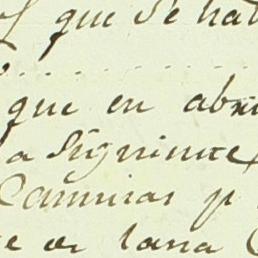 que se hal
que en abri
la Siguiente
Camisas p
de lana